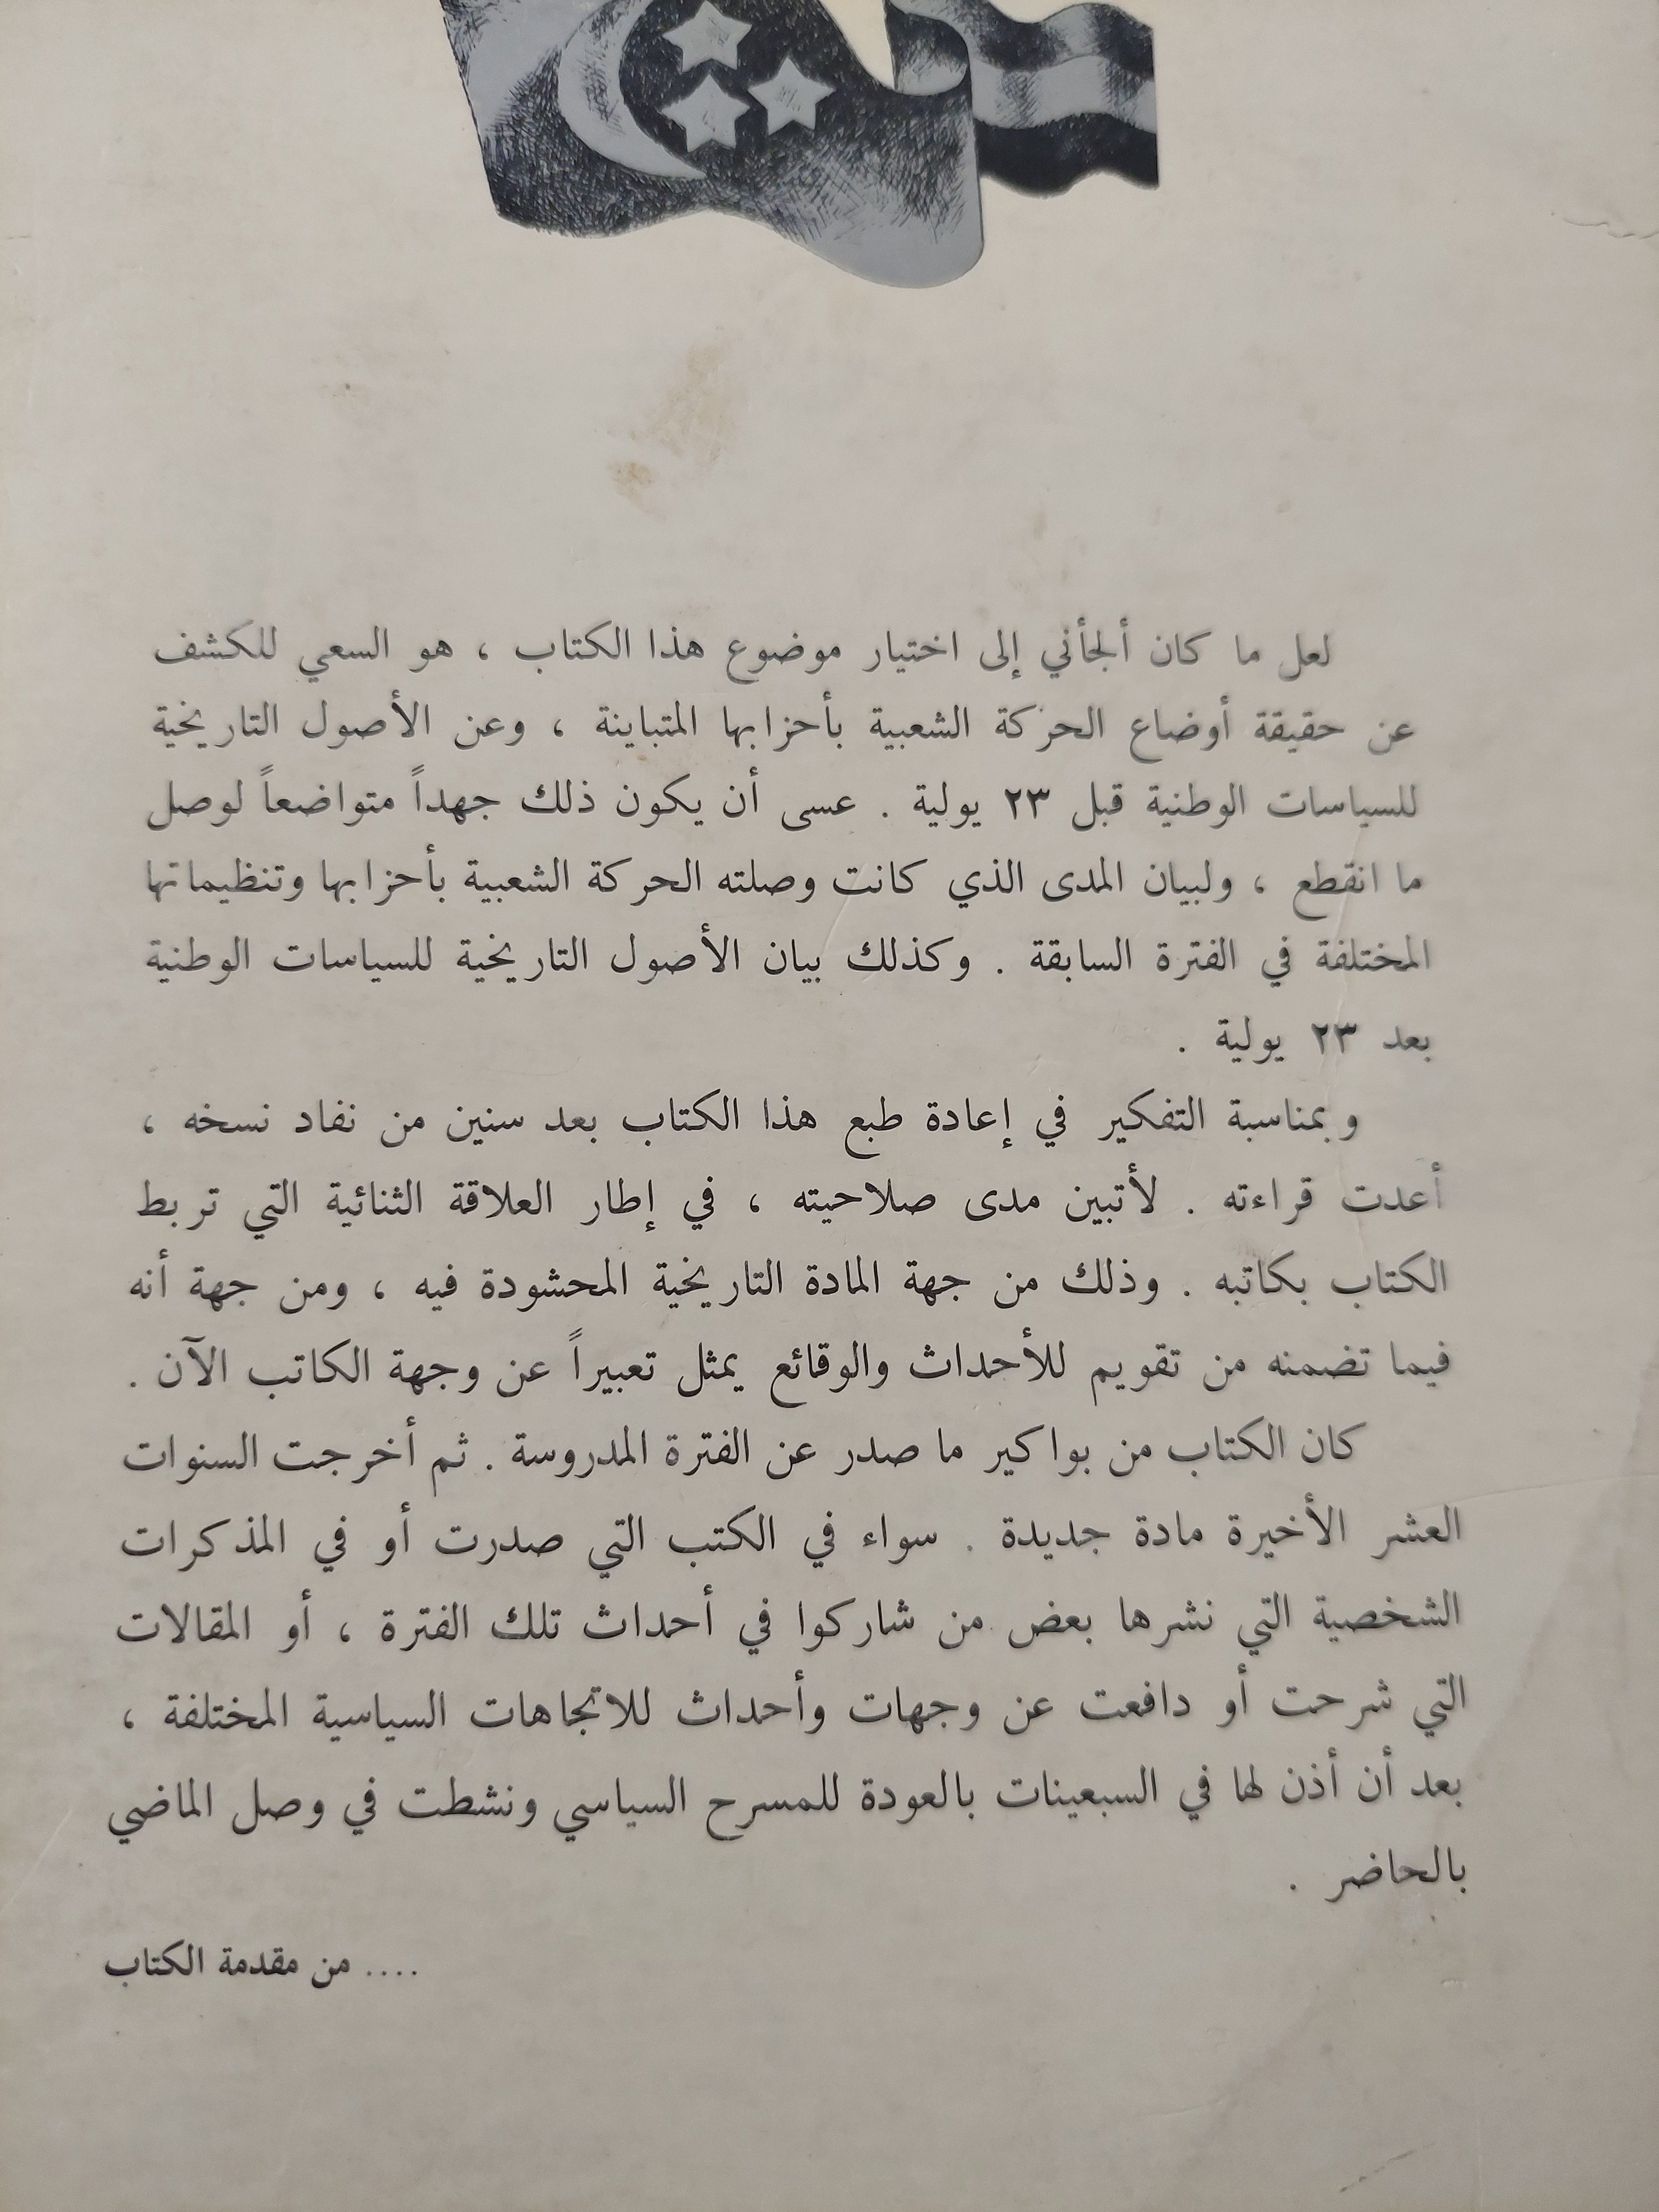 لعل ما كان ألجأني إلى اختيار موضوع هذا الكتاب ، هو السعي للكشف
عن حقيقة أوضاع الحركة الشعبية بأحزابها المتباينة ، وعن الأصول التاريخية
للسياسات الوطنية قبل ٢٣ يولية . عسى أن يكون ذلك جهداً متواضعاً لوصل
ما انقطع ، ولبيان المدى الذي كانت وصلته الحركة الشعبية بأحزابها وتنظيماتها
المختلفة في الفترة السابقة . وكذلك بيان الأصول التاريخية للسياسات الوطنية
بعد ٢٣ يولية .
وبمناسبة التفكير في إعادة طبع هذا الكتاب بعد سنين من نفاد نسخه ،
أعدت قراءته . لأتبين مدى صلاحيته ، في إطار العلاقة الثنائية التي تربط
الكتاب بكاتبه . وذلك من جهة المادة التاريخية المحشودة فيه ، ومن جهة أنه
فيما تضمنه من تقويم للأحداث والوقائع يمثل تعبيراً عن وجهة الكاتب الآن .
كان الكتاب من بواكير ما صدر عن الفترة المدروسة . ثم أخرجت السنوات
العشر الأخيرة مادة جديدة . سواء في الكتب التي صدرت أو في المذكرات
الشخصية التي نشرها بعض من شاركوا في أحداث تلك الفترة ، أو المقالات
التي شرحت أو دافعت عن وجهات وأحداث للاتجاهات السياسية المختلفة ،
بعد أن أذن لها في السبعينات بالعودة للمسرح السياسي ونشطت في وصل الماضي
بالحاضر .
.... من مقدمة الكتاب